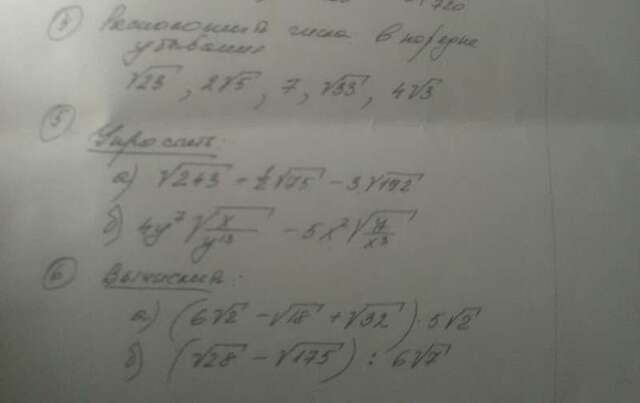 √720
④ Расположить числа в порядке
убывания
√23 , 2√5 , 7 , √33 , 4√3
⑤ Упростить:
а) √243 - 1/2√75 - 3√192
б) 4y⁷ √(x/y¹³) - 5x² √(y/x³)
⑥ Вычислить:
а) (6√2 - √18 + √32) · 5√2
б) (√28 - √175) : 6√7